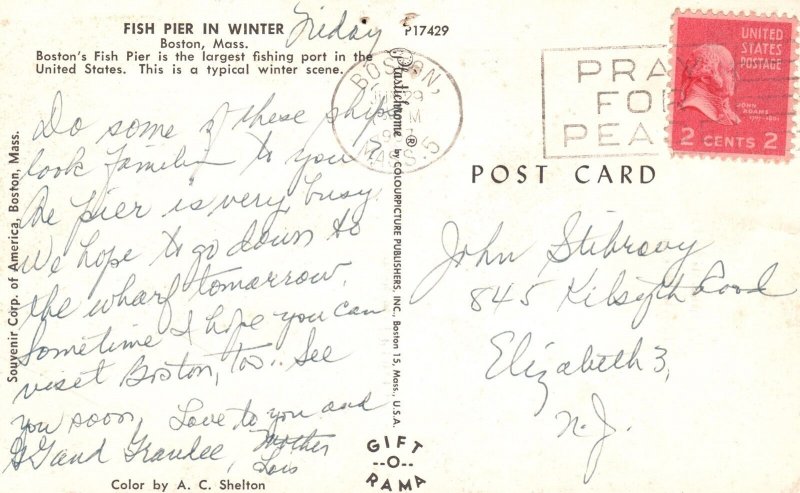 FISH PIER IN WINTER
Boston, Mass.
Boston's Fish Pier is the largest fishing port in the
United States. This is a typical winter scene.
Friday
P17429
Do some of these ships
look familiar to you?
The pier is very busy.
We hope to go down to
the wharf tomorrow.
Sometime I hope you can
visit Boston, too.. See
you soon, Love to you and
and Grandee, Mother
Lois
Color by A. C. Shelton
Souvenir Corp. of America, Boston, Mass.
Plastichrome ® by COLOURPICTURE PUBLISHERS, INC., Boston 15, Mass., U.S.A.
GIFT
--O--
RAMA
BOSTON,
29
M
MASS. 5
PRAY
FOR
PEA
UNITED
STATES
POSTAGE
JOHN
ADAMS
2 CENTS 2
POST CARD
John Stibravy
845 Kilsyth Road
Elizabeth 3,
N.J.